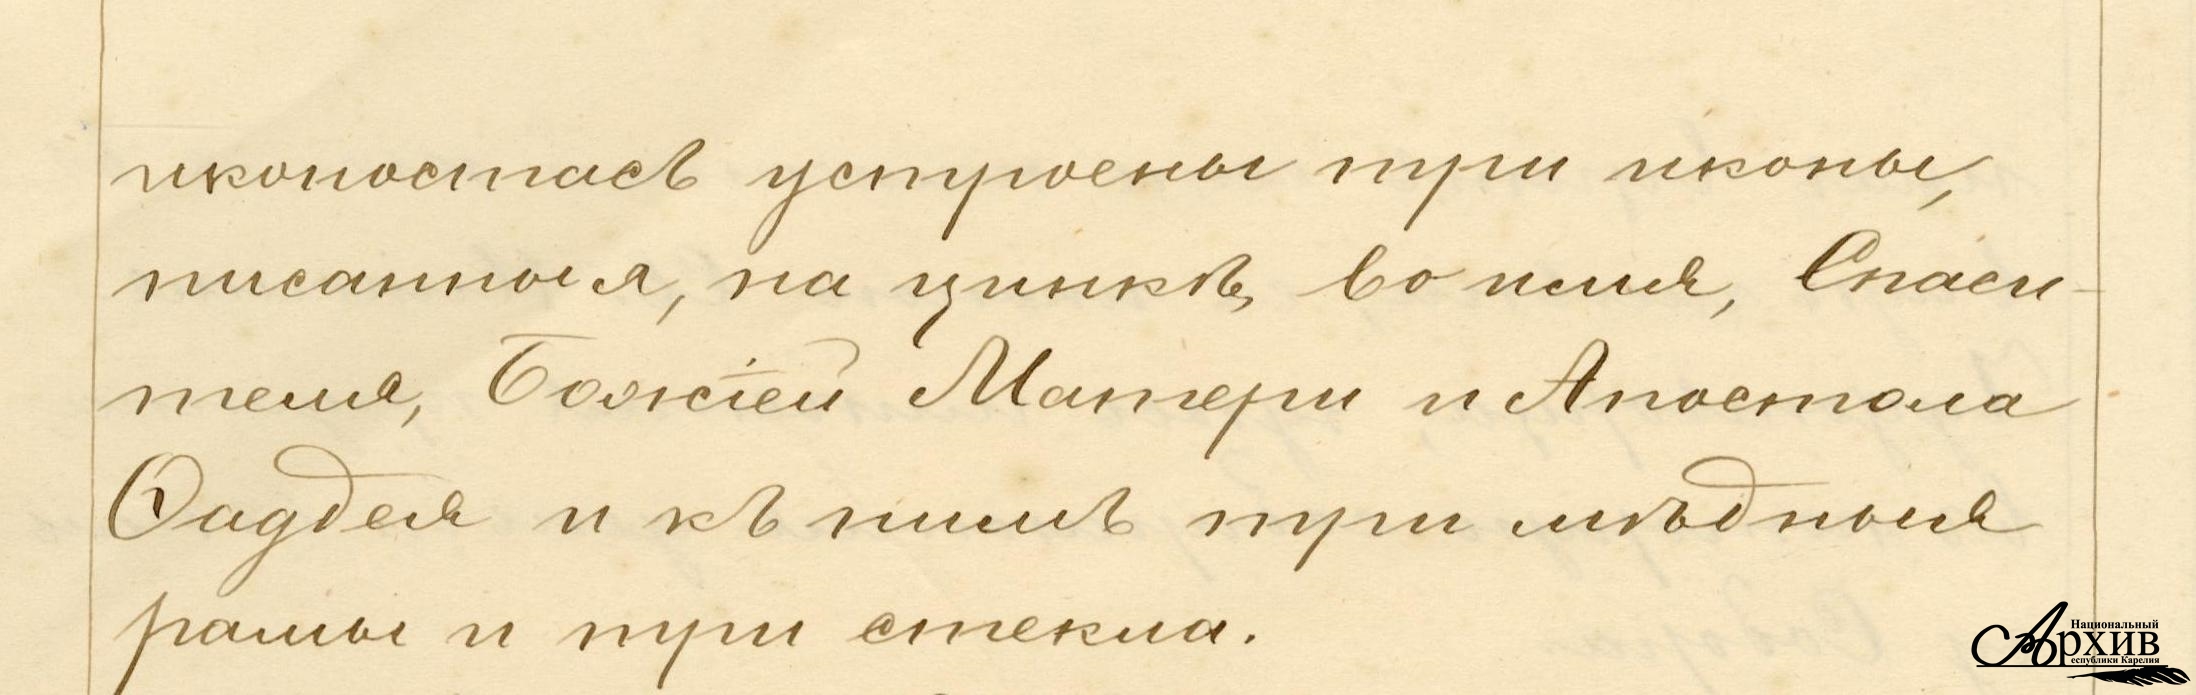 иконостасъ устроены три иконы,
писанныя, на цинкѣ, во имя, Спаси-
теля, Божіей Матери и Апостола
Ѳаддея и къ нимъ три мѣдныя
рамы и три стекла.
Национальный
Архив
еспублики Карелия